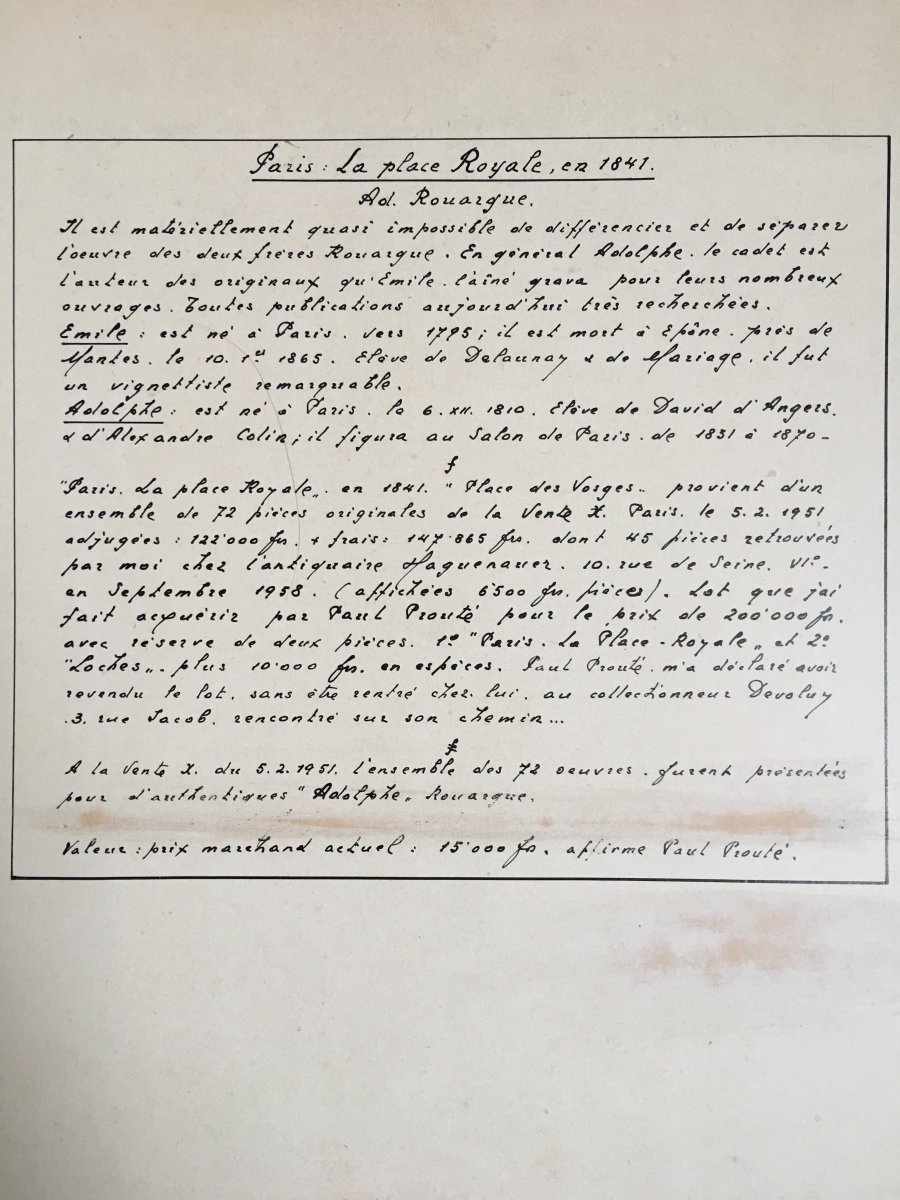 Paris : La place Royale, en 1841.
Ad. Rouargue.
Il est matériellement quasi impossible de différencier et de séparer
l'oeuvre des deux frères Rouargue. En général Adolphe. le cadet est
l'auteur des originaux qu'Emile. l'aîné grava pour leurs nombreux
ouvrages. Toutes publications aujourd'hui très recherchées.
Emile : est né à Paris. vers 1795; il est mort à Epône. près de
Mantes. le 10. 1er 1865. Elève de Delaunay & de Mariage, il fut
un vignettiste remarquable.
Adolphe : est né à Paris. le 6. XII. 1810. Elève de David d'Angers.
& d'Alexandre Colin; il figura au Salon de Paris. de 1831 à 1870-
"Paris. La place Royale„. en 1841. "Place des Vosges„ provient d'un
ensemble de 72 pièces originales de la Vente X. Paris. le 5. 2. 1951
adjugées : 122'000 fr. + frais : 147'865 fr. dont 45 pièces retrouvées
par moi chez l'antiquaire Haguenauer. 10. rue de Seine. VIe.
en Septembre 1958. (affichées 6'500 fr. pièces). Lot que j'ai
fait acquérir par Paul Prouté pour le prix de 200'000 fr.
avec réserve de deux pièces. 1° "Paris. La Place-Royale„ et 2°
"Loches„. plus 10'000 fr. en espèces. Paul Prouté. m'a déclaré avoir
revendu le lot. sans être rentré chez lui. au collectionneur Devoluy
.3. rue Jacob. rencontré sur son chemin...
A la Vente X. du 5. 2. 1951. l'ensemble des 72 oeuvres. furent présentées
pour d'authentiques "Adolphe„ Rouargue.
Valeur : prix marchand actuel : 15'000 fr. affirme Paul Prouté.